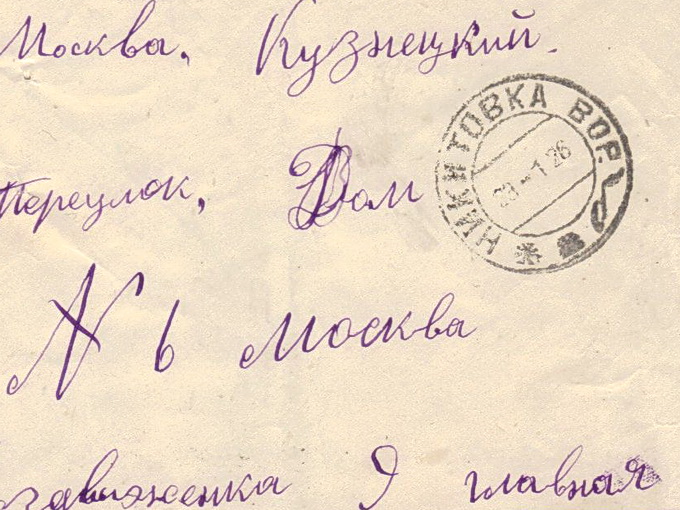 Москва. Кузнецкий.
Переулок, Дом
N 6 Москва
здвиженка 9 главная
НИКИТОВКА ВОР.
23-1 26